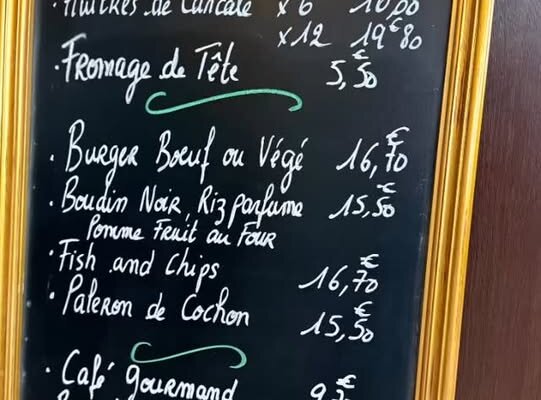 · Huîtres de Cancale x 6 10,00
x 12 19€80
· Fromage de Tête 5,50€
· Burger Bœuf ou Végé 16,70€
· Boudin Noir, Riz parfumé 15,50€
Pomme Fruit au Four
· Fish and Chips 16,70€
· Paleron de Cochon 15,50€
· Café gourmand